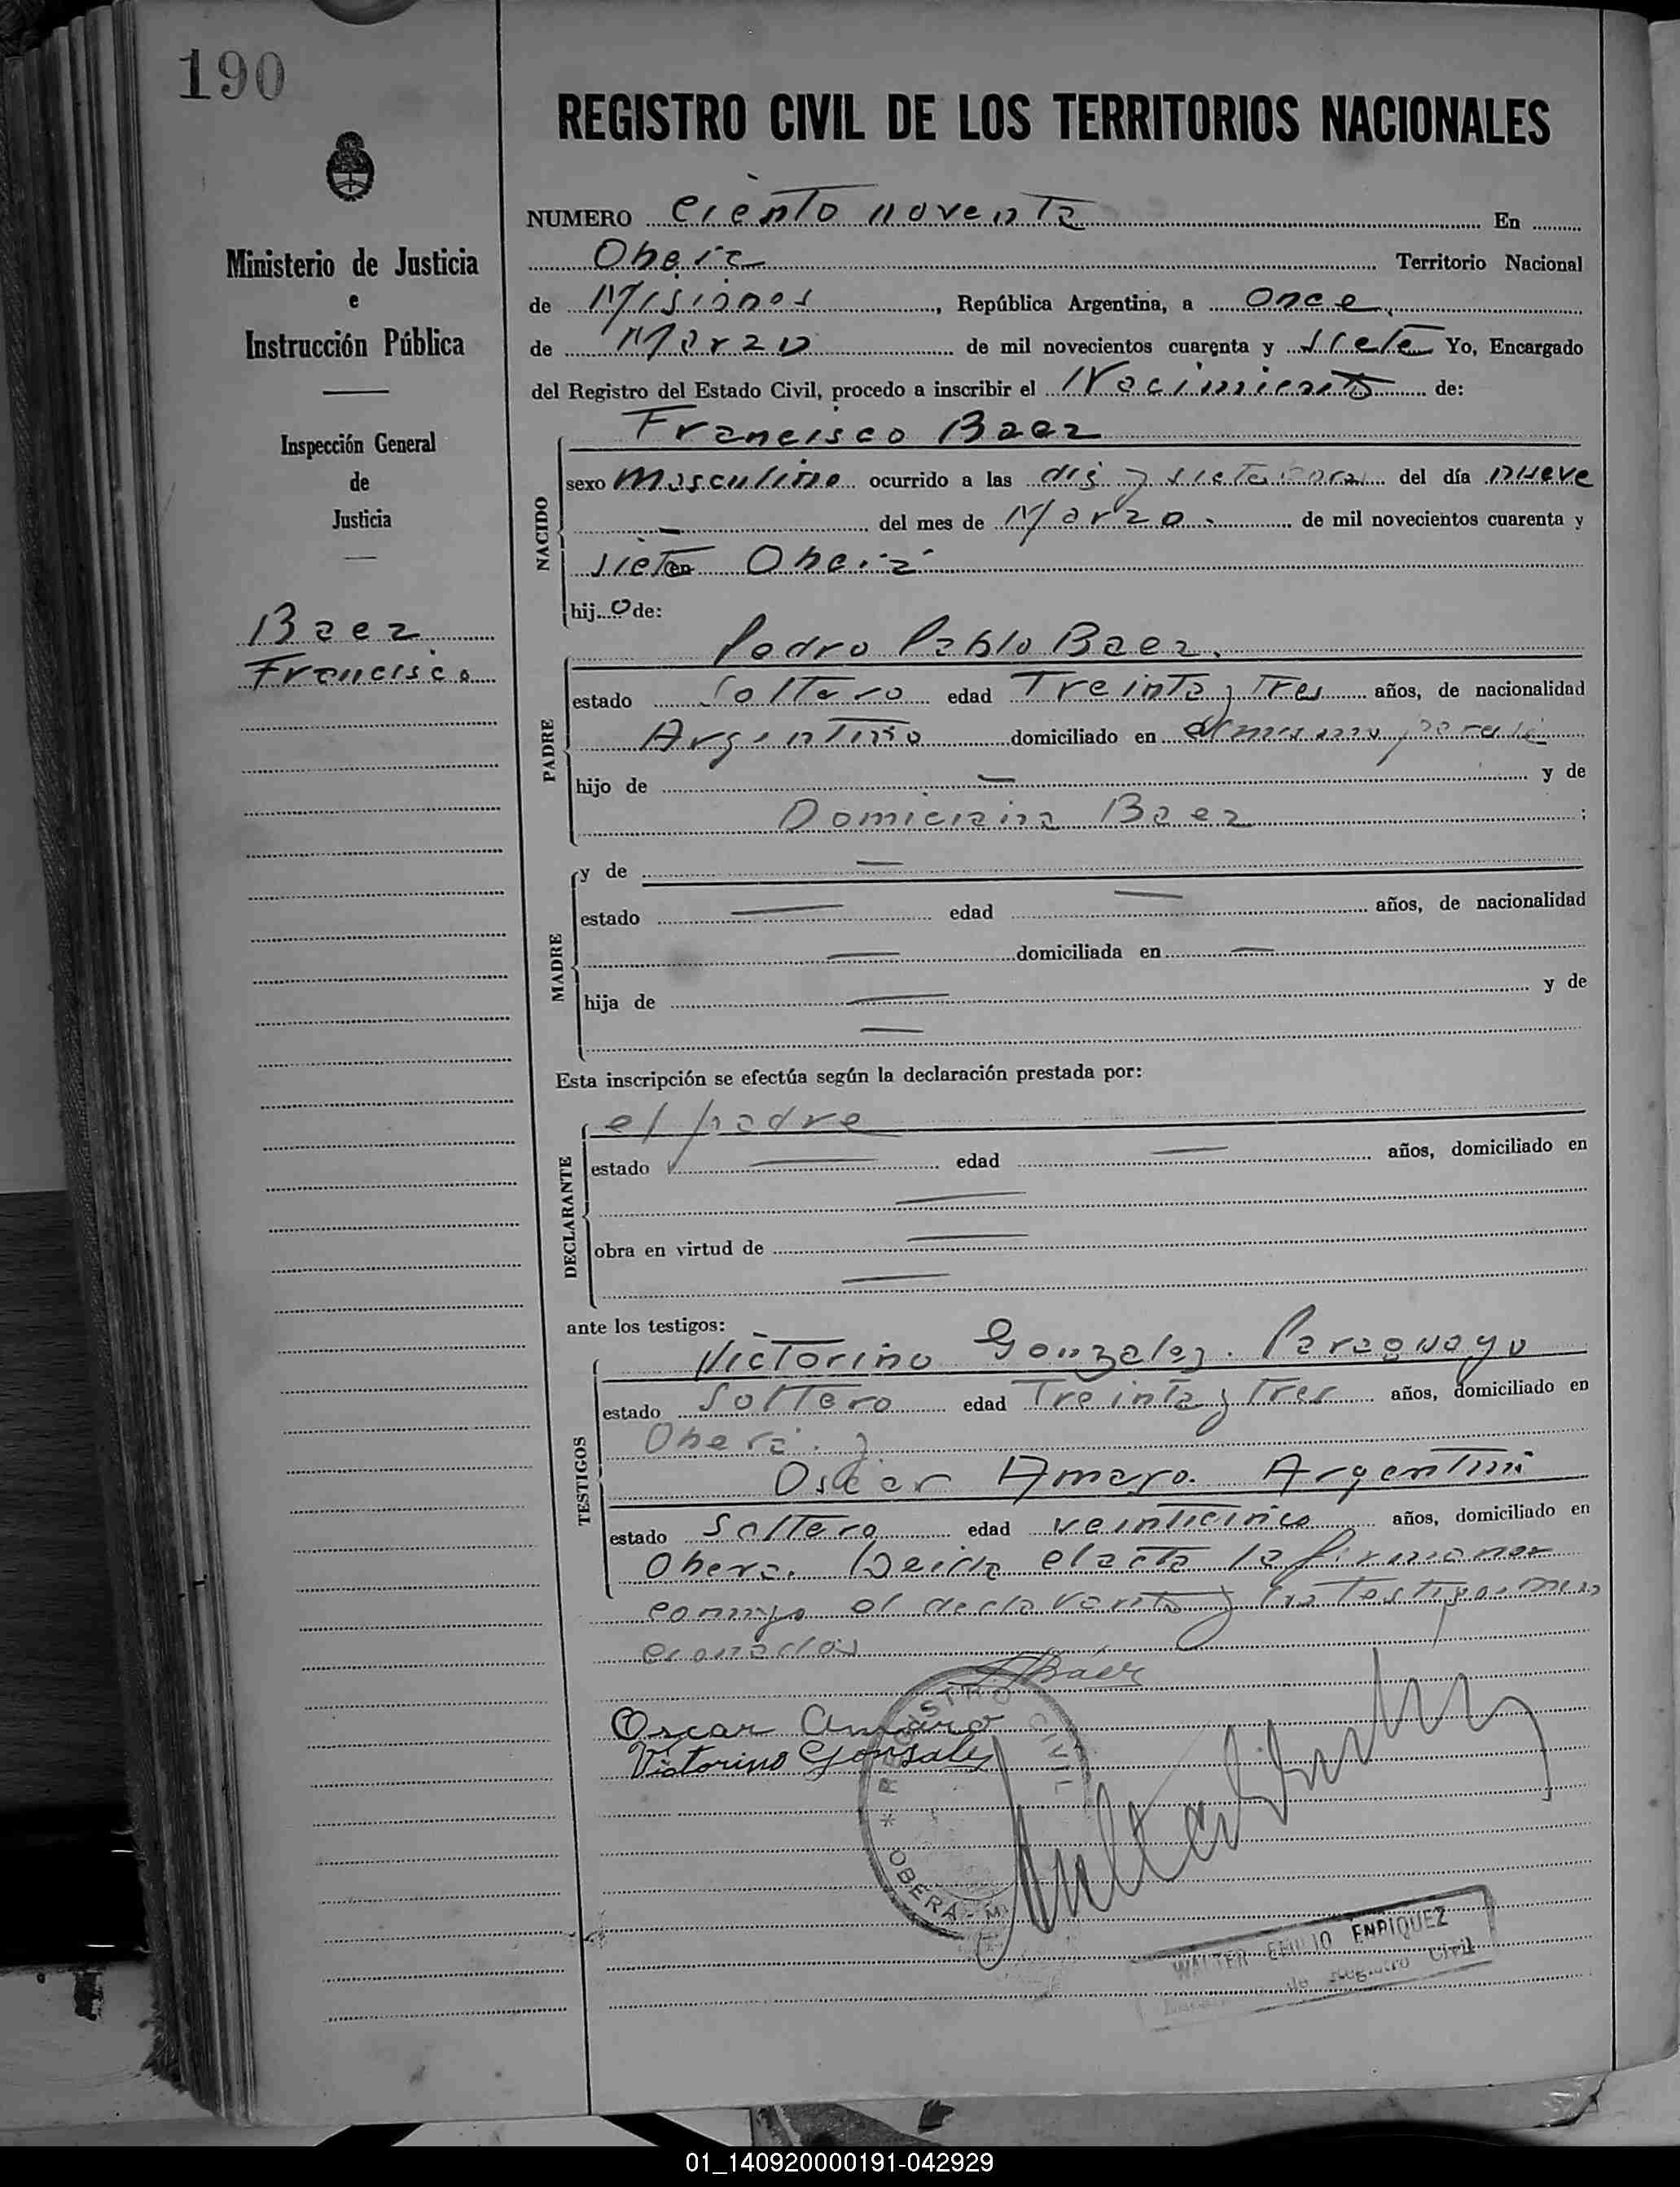 190
REGISTRO CIVIL DE LOS TERRITORIOS NACIONALES
Ministerio de Justicia
e
Instrucción Pública
Inspección General
de
Justicia
Baez
Francisco
NUMERO Ciento noventa En
Oberá Territorio Nacional
de Misiones, República Argentina, a Once
de Marzo de mil novecientos cuarenta y siete Yo, Encargado
del Registro del Estado Civil, procedo a inscribir el Nacimiento de:
Francisco Baez
NACIDO
sexo Masculino ocurrido a las diez y siete horas del día nueve
— del mes de Marzo. de mil novecientos cuarenta y
siete en Oberá
hijo de:
PADRE
Pedro Pablo Baez.
estado Soltero edad Treinta y Tres años, de nacionalidad
Argentino domiciliado en
hijo de — y de
Domiciana Baez ;
MADRE
y de —
estado — edad — años, de nacionalidad
— domiciliada en —
hija de — y de
—
Esta inscripción se efectúa según la declaración prestada por:
DECLARANTE
el padre
estado — edad — años, domiciliado en
—
obra en virtud de —
—
ante los testigos:
TESTIGOS
Victorino Gonzalez. Paraguayo
estado Soltero edad Treinta y Tres años, domiciliado en
Oberá. y
Oscar Amaro. Argentino
estado Soltero edad veinticinco años, domiciliado en
Oberá. Leida el acta la firmaron
conmigo el declarante y los testigos men
cionados
Baez
Oscar Amaro
Victorino Gonsalez
REGISTRO CIVIL
* OBERÁ - M
WALTER EMILIO ENRIQUEZ
de Registro Civil
01_140920000191-042929